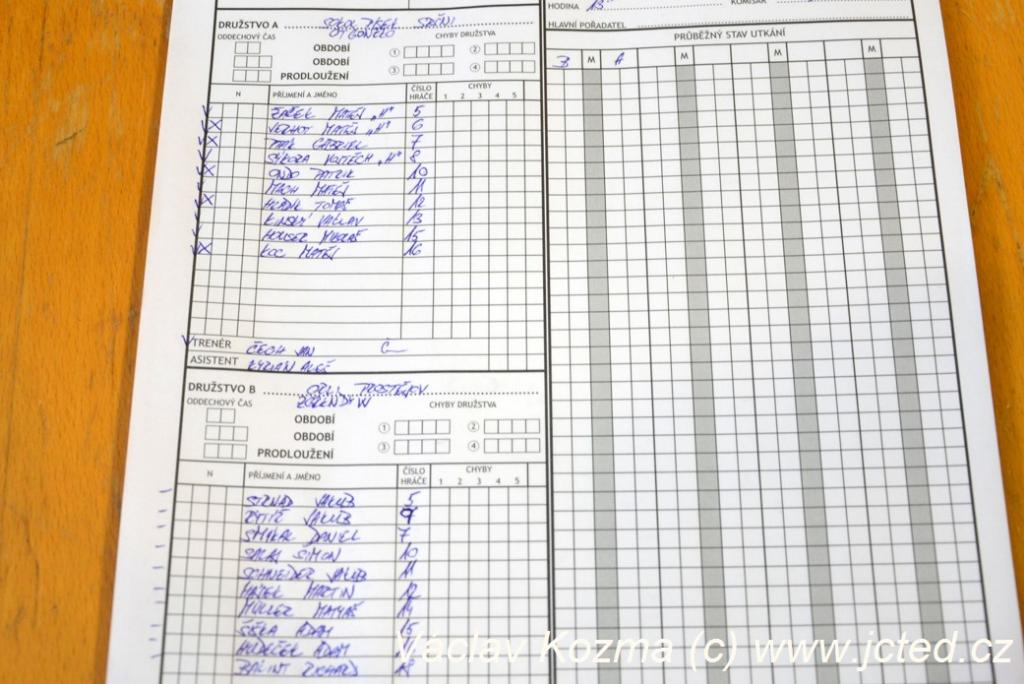 HODINA 13
KOMISAŘ
HLAVNÍ POŘADATEL
DRUŽSTVO A
ODDECHOVÝ ČAS
CHYBY DRUŽSTVA
OBDOBÍ 1 2
OBDOBÍ
PRODLOUŽENÍ 3 4
N PŘÍJMENÍ A JMÉNO ČÍSLO HRÁČE CHYBY
1 2 3 4 5
ŽÁČEK MATĚJ „H“ 5
MATĚJ „H“ 6
GABRIEL 7
SÝKORA VOJTĚCH „H“ 8
PATRIK 10
MACH MATĚJ 11
TOMÁŠ 12
KINSKÝ VÁCLAV 13
HOUSER 15
KOC MATĚJ 16
TRENÉR ČECH JAN
ASISTENT ALEŠ
DRUŽSTVO B
ODDECHOVÝ ČAS
CHYBY DRUŽSTVA
OBDOBÍ 1 2
OBDOBÍ
PRODLOUŽENÍ 3 4
N PŘÍJMENÍ A JMÉNO ČÍSLO HRÁČE CHYBY
1 2 3 4 5
STRNAD JAKUB 5
JAKUB
SMÝKAL DANIEL 7
ŠIMON 10
SCHNEIDER JAKUB 11
HÁJEK MARTIN 12
MÜLLER MATYÁŠ 14
ADAM 15
HUDEČEK ADAM
BÁLINT RICHARD 18
PRŮBĚŽNÝ STAV UTKÁNÍ
B M A M M M
Václav Kozma (c) www.jcted.cz